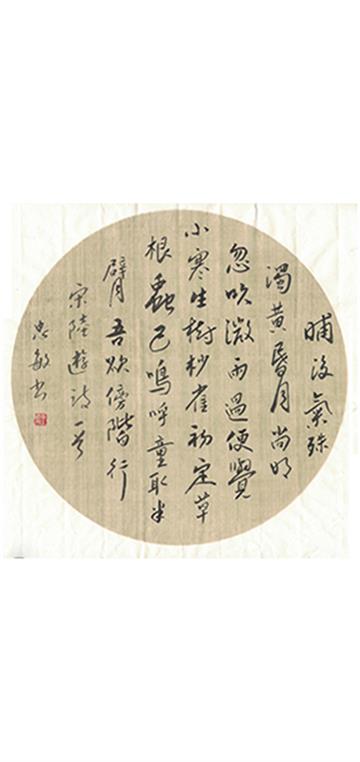 晡後氣殊
濁黃昏月尚明
忽吹微雨過便覺
小寒生樹杪雀初定草
根蟲已鳴呼童取半
臂吾欲傍階行
宋陸遊詩一首
忠敏書